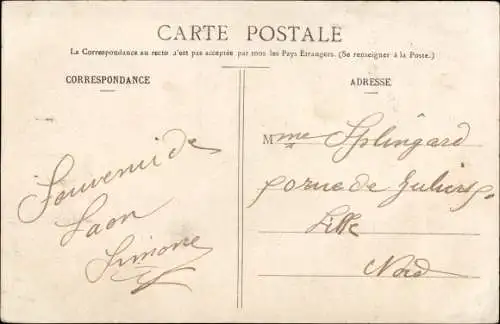 CARTE POSTALE
La Correspondance au recto n'est pas acceptée par tous les Pays Etrangers. (Se renseigner à la Poste.)
CORRESPONDANCE
Souvenir de
Laon
Simone
ADRESSE
Mme Splingard
rue de
Lille
Nord